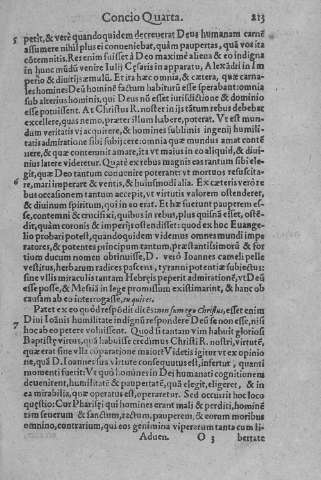 Concio Quarta. 213
5 petit, & verè quandoquidem decreuerat Deus humanam carnē
assumere nihil plus ei conueniebat, quàm paupertas, quā vos ita
cōtemnitis. Res enim fuisset à Deo maximè aliena & eo indigna
in hunc mūdū venire Iulij Cęsaris in apparatu, Alexādri in Im
perio & diuitijs æmulū. Et ita hæc omnia, & cætera, quæ carna-
les homines Deū hominē factum habiturū esse sperabant: omnia
sub alterius hominis, qui Deus nō esset iurisdictione & dominio
esse potuissent. At Christus R. noster in ijs tātum rebus debebat
excellere, quas nemo, præter illum habere, poterat. Vt est mun-
dum veritatis viacquirere, & homines sublimis ingenij humili-
tatis admiratione sibi subijcere: omnia quæ mundus amat conté
nere, & quæ contemnit amare, ita vt maius in eo aliquid, & diui-
nius latere videretur. Quare ex rebus magnis eas tantum sibi ele-
git, quæ Deo tantum conuenire poterant: vt mortuos resuscita-
6 re, mari imperare & ventis, & huiusmodi alia. Ex cæteris verò re
bus occasionem tantum accepit, vt virtutis valorem ostenderet,
& diuinum spiritum, qui in eo erat. Et hæ fuerunt pauperem es-
se, contemni & crucifixi, quibus in rebus, plus quàm esset, ostē-
dit, quàm coronis & imperijs ostendisset: quod ex hoc Euange-
lio probari potest, quandoquidem videmus omnes mundi impe
ratores, & potentes principum tantum, præstantissimorū & for
tium ducum nomen obtinuisse, D. verò Ioannes cameli pelle
vestitus, herbarum radices pascens, tyranni potentiæ subiectus;
sine vllis miraculis tantam Hebręis peperit admirationē, vt Deū
esse posse, & Messiā in lege promissum existimarint, & hanc ob
causam ab eo interrogasse, tu quis es?
Patet ex eo quòd respōdit dicēs: non sum ego Christus, esset enim
7 Diui Ioānis humilitate indignū respondere Deū se non esse, nisi
hoc ab eo petere voluissent. Quòd si tantam vim habuit gloriosi
Baptistę virtus, quā habuisse credimus Christi R. nostri, virtutē,
quæ erat sine vlla cōparatione maior? Videtis igitur vt ex opinio
ne, quā D. Ioannes sua virtute consequutus est, infertur, quanti
momenti fuerit: Vt quòd homines in Dei humanati cognitionem
deuenirent, humilitatē & paupertatē, quā elegit, eligeret, & in
ea mirabilia, quæ operatus est, operaretur. Sed occurrit hoc loco
quęstio: Cur Pharisęi qui homines erant mali & perditi, hominē
tam seuerum & sanctum, rectum, pauperem, & eorum moribus
omnino, contrarium, qui eos genimina viperarum tanta cum li-
Aduen. O 3 bertate